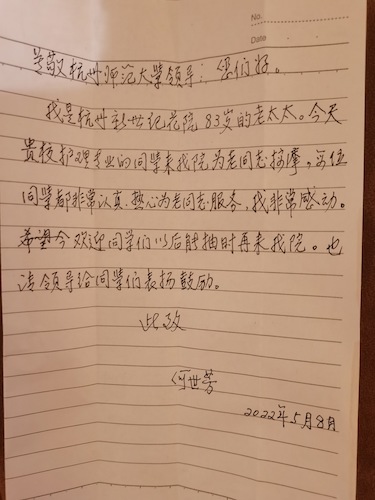 No.
Date
尊敬杭州师范大学领导：您们好。
我是杭州新世纪花院83岁的老太太。今天
贵校护理专业的同学来我院为老同志按摩。每位
同学都非常认真.热心为老同志服务，我非常感动。
希望今欢迎同学们以后能抽时再来我院。也
请领导给同学们表扬鼓励。
此致
何世芳
2022年5月8月